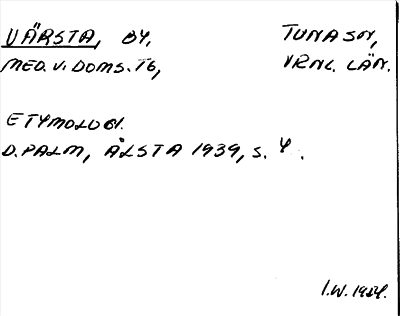 VÄRSTA, BY, TUNA SN,
MED. V. DOMS. TG, VRNL. LÄN.
ETYMOLOGI.
D. PALM, ÅLSTA 1939, S. 4.
I.W. 1984.